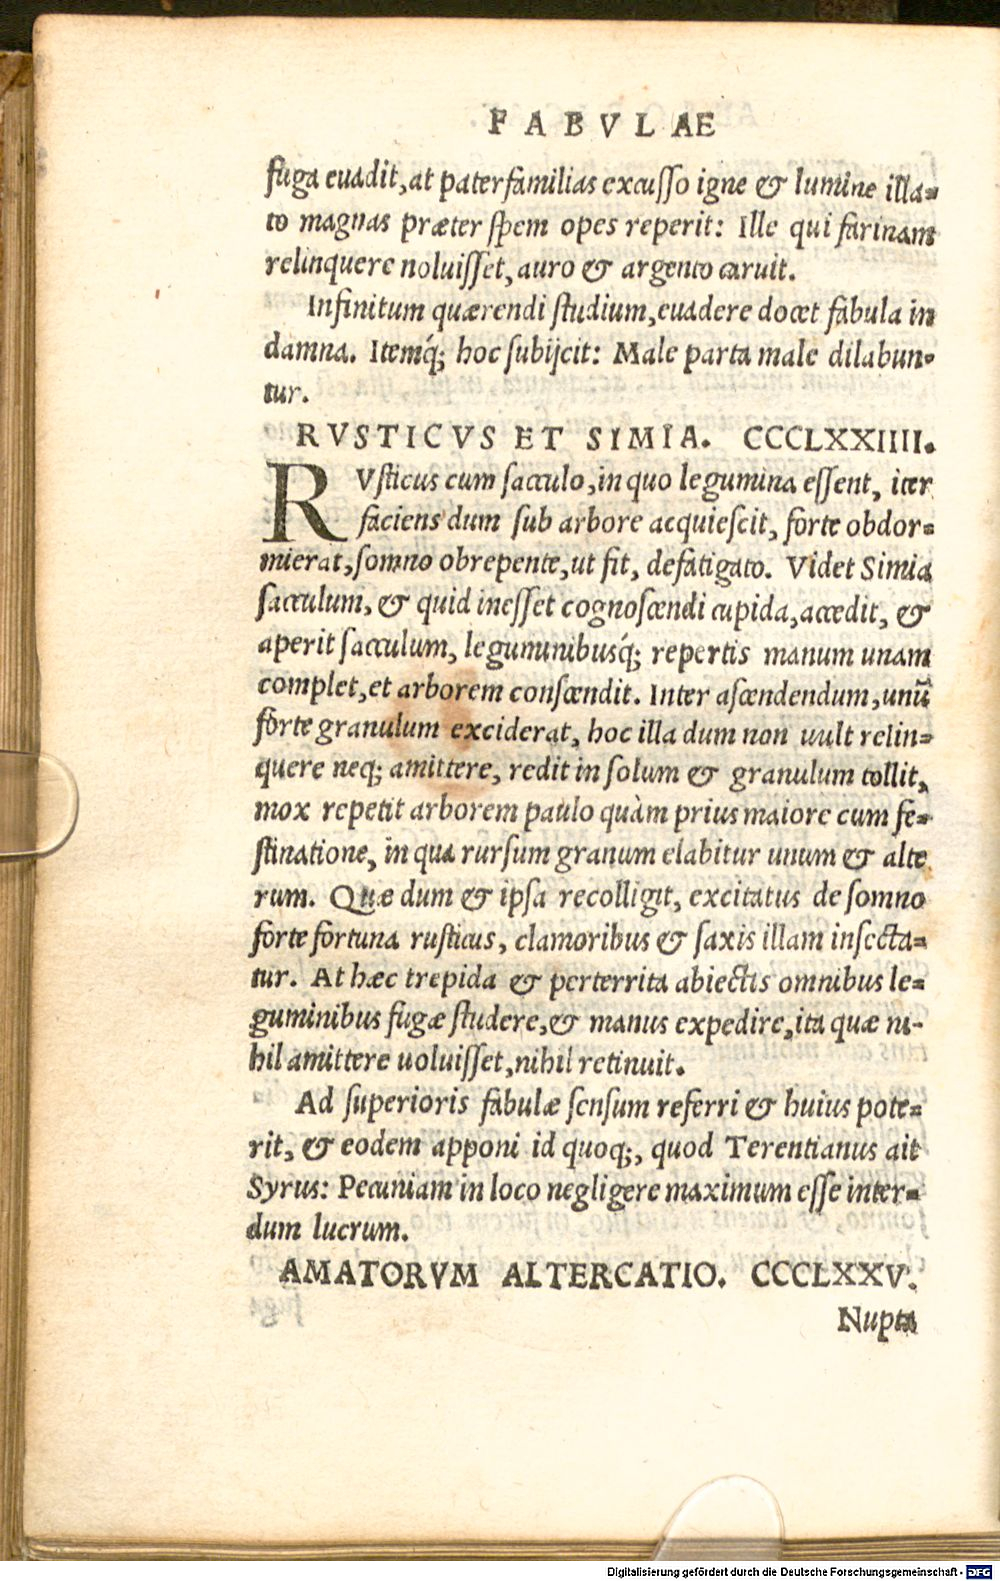 FABVLAE
fuga euadit, at paterfamilias excusso igne & lumine illa-
to magnas præter spem opes reperit: Ille qui farinam
relinquere noluisset, auro & argento caruit.
Infinitum quærendi studium, euadere docet fabula in
damna. Itemq́; hoc subijcit: Male parta male dilabun-
tur.
RVSTICVS ET SIMIA. CCCLXXIIII.
RVsticus cum sacculo, in quo legumina essent, iter
faciens dum sub arbore acquiescit, forte obdor-
mierat, somno obrepente, ut fit, defatigato. Videt Simia
sacculum, & quid inesset cognoscendi cupida, accedit, &
aperit sacculum, leguminibusq́; repertis manum unam
complet, et arborem conscendit. Inter ascendendum, unũ
forte granulum exciderat, hoc illa dum non uult relin-
quere neq; amittere, redit in solum & granulum tollit,
mox repetit arborem paulo quàm prius maiore cum fe-
stinatione, in qua rursum granum elabitur unum & alte
rum. Quæ dum & ipsa recolligit, excitatus de somno
forte fortuna rusticus, clamoribus & saxis illam insecta-
tur. At hæc trepida & perterrita abiectis omnibus le-
guminibus fugæ studere, & manus expedire, ita quæ ni-
hil amittere uoluisset, nihil retinuit.
Ad superioris fabulæ sensum referri & huius pote-
rit, & eodem apponi id quoq;, quod Terentianus ait
Syrus: Pecuniam in loco negligere maximum esse inter-
dum lucrum.
AMATORVM ALTERCATIO. CCCLXXV.
Nupta
Digitalisierung gefördert durch die Deutsche Forschungsgemeinschaft - DFG